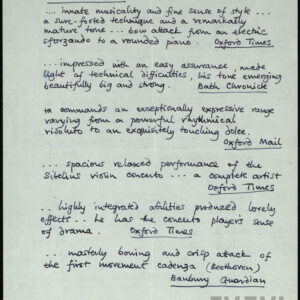 .... innate musicality and fine sense of style ...
a sure-footed technique and a remarkably
mature tone ... bow attack from an electric
sforzando to a rounded piano. Oxford Times
... impressed with an easy assurance made
light of technical difficulties, his tone emerging
beautifully big and strong. Bath Chronicle
commands an exceptionally expressive range
varying from a powerful rhythmical
risoluto to an exquisitely touching dolce.
Oxford Mail
... spacious relaxed performance of the
Sibelius violin concerto ... a complete artist
Oxford Times
.. highly integrated abilities produced lovely
effects ... he has the concerto player's sense
of drama. Oxford Times
... masterly bowing and crisp attack of
the first movement cadenza (Beethoven)
Banbury Guardian